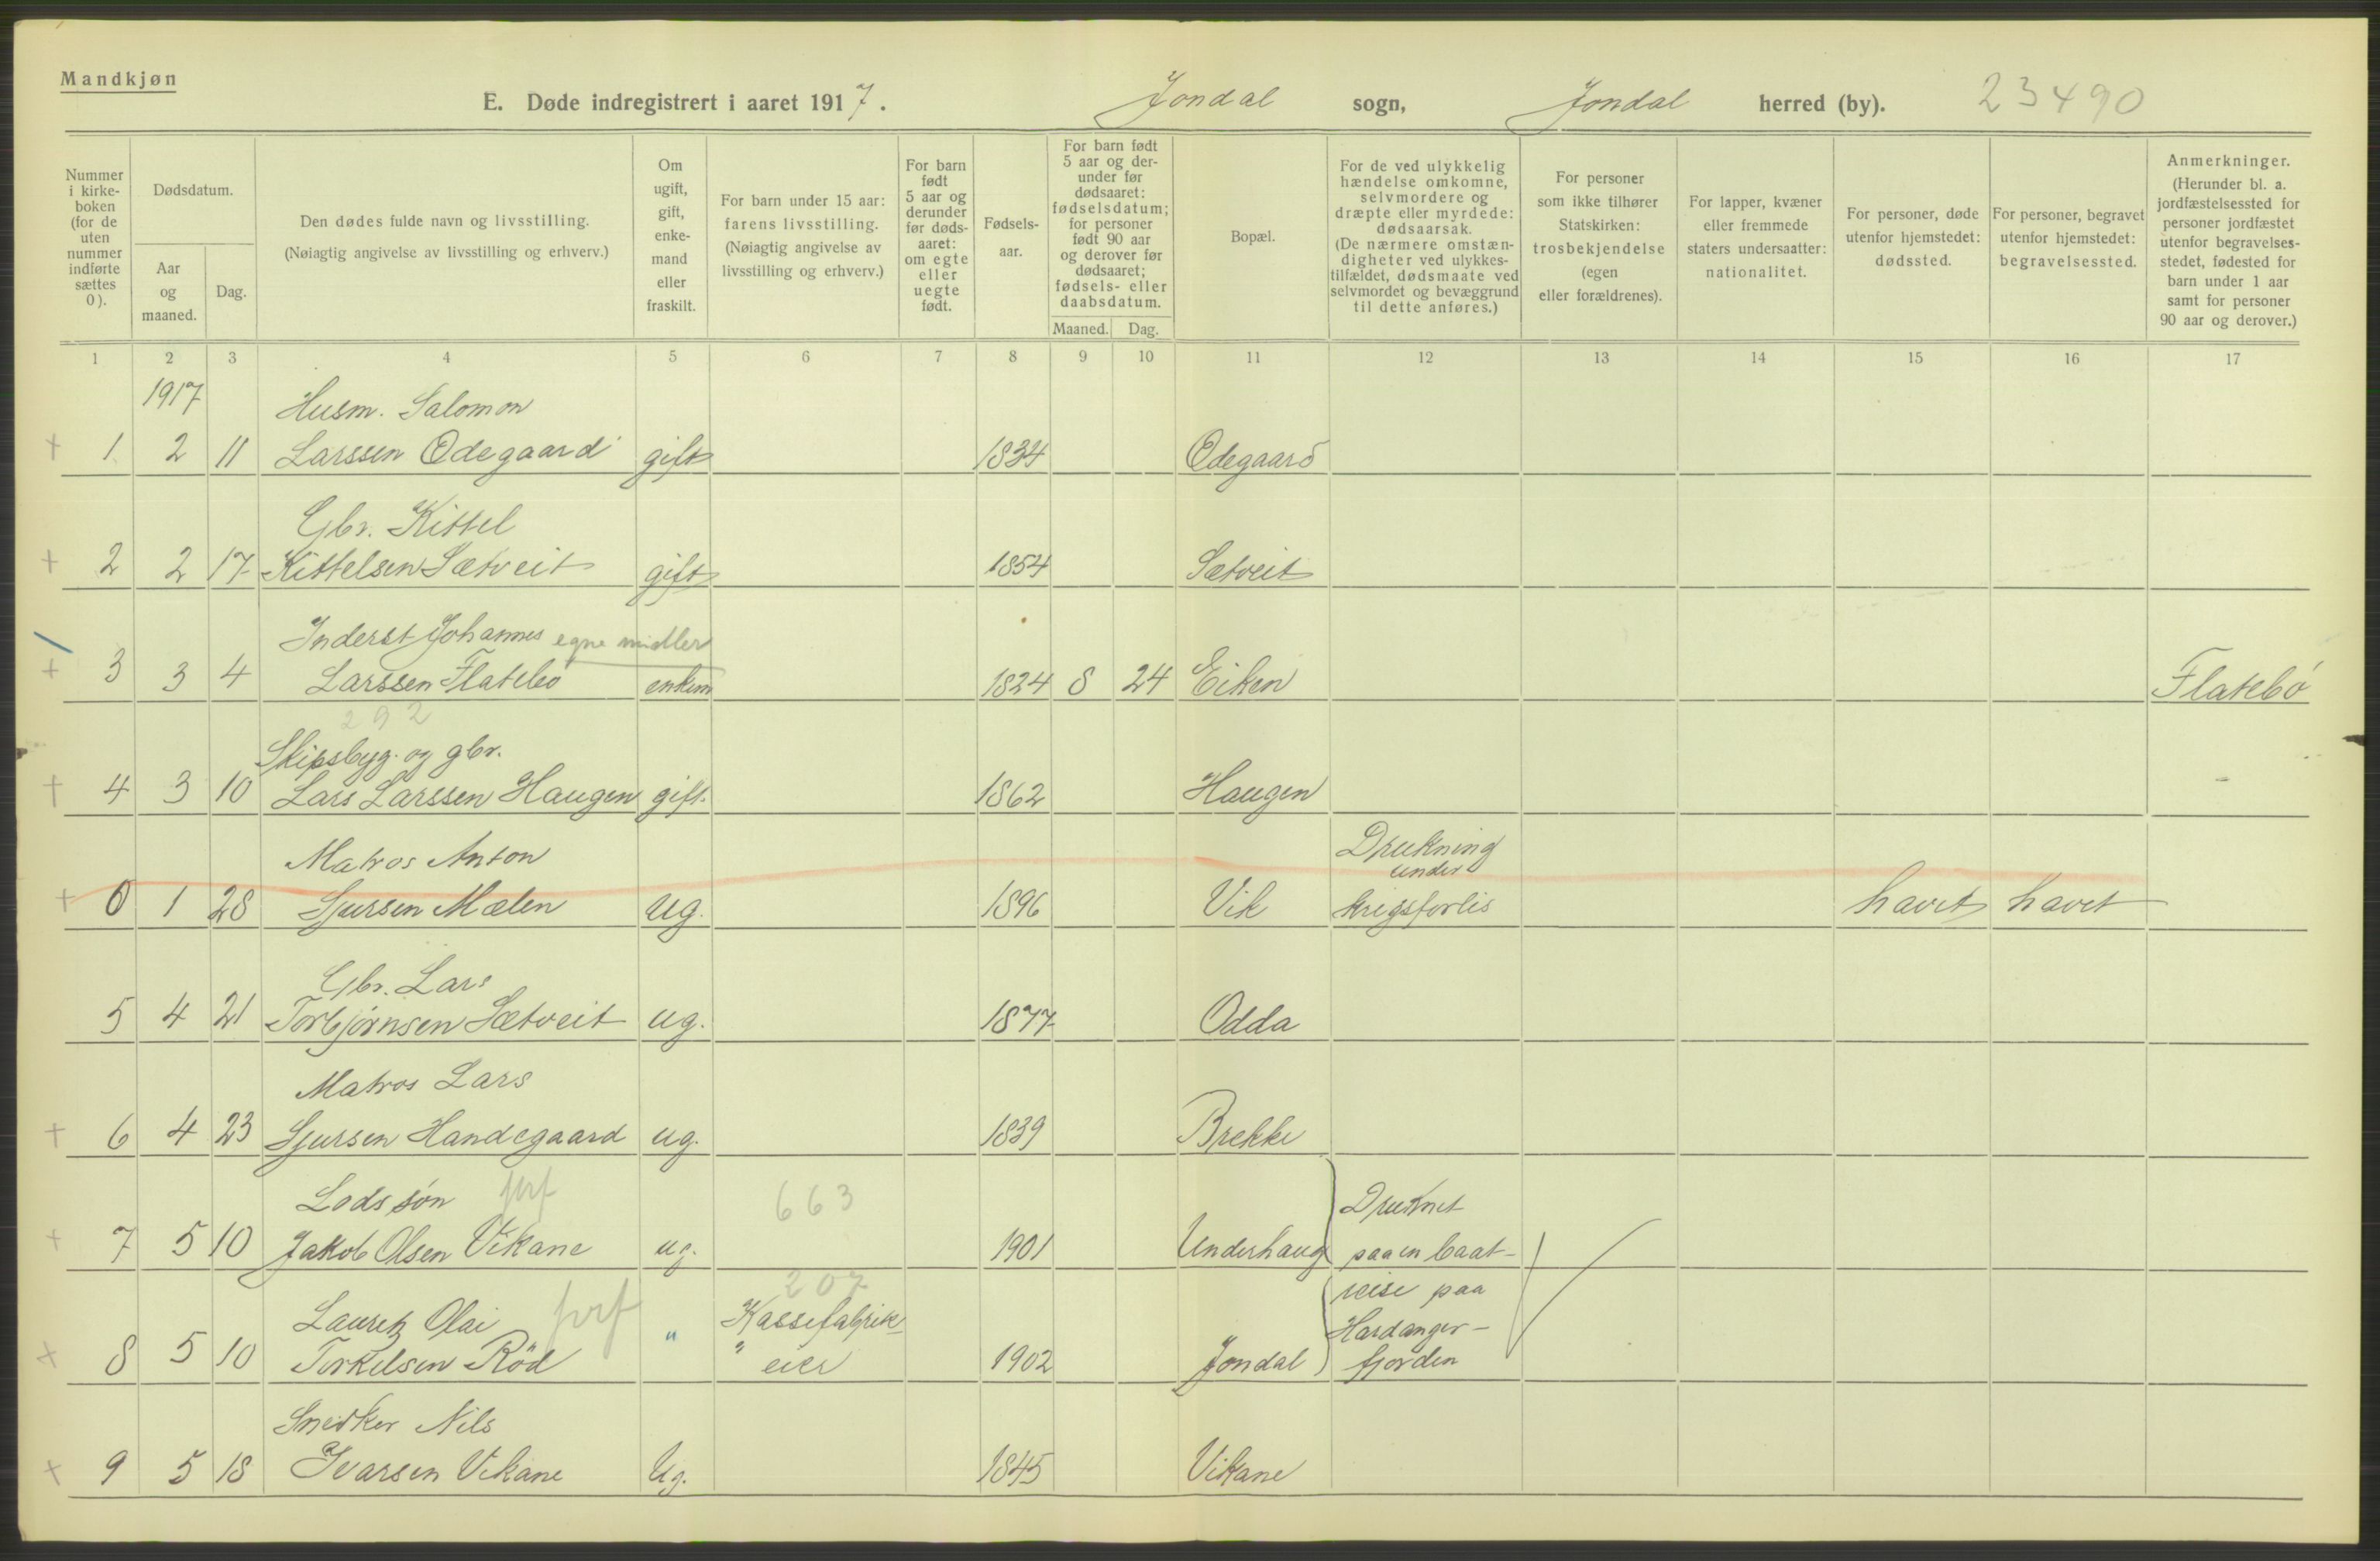 Mandkjøn
E. Døde indregistrert i aaret 1917. Jondal sogn, Jondal herred (by). 23490
Nummer i kirke-boken (for de uten nummer indførte sættes 0).
Dødsdatum.
Aar og maaned.
Dag.
Den dødes fulde navn og livsstilling.
(Nøiagtig angivelse av livsstilling og erhverv.)
Om ugift, gift, enke-mand eller fraskilt.
For barn under 15 aar: farens livsstilling.
(Nøiagtig angivelse av livsstilling og erhverv.)
For barn født 5 aar og derunder før døds-aaret: om egte eller uegte født.
Fødsels-aar.
For barn født 5 aar og der-under før dødsaaret: fødselsdatum; for personer født 90 aar og derover før dødsaaret; fødsels- eller daabsdatum.
Maaned. Dag.
Bopæl.
For de ved ulykkelig hændelse omkomne, selvmordere og dræpte eller myrdede: dødsaarsak.
(De nærmere omstæn-digheter ved ulykkes-tilfældet, dødsmaate ved selvmordet og bevæggrund til dette anføres.)
For personer som ikke tilhører Statskirken: trosbekjendelse (egen eller forældrenes).
For lapper, kvæner eller fremmede staters undersaatter: nationalitet.
For personer, døde utenfor hjemstedet: dødssted.
For personer, begravet utenfor hjemstedet: begravelsessted.
Anmerkninger.
(Herunder bl. a. jordfæstelsessted for personer jordfæstet utenfor begravelses-stedet, fødested for barn under 1 aar samt for personer 90 aar og derover.)
1 2 3 4 5 6 7 8 9 10 11 12 13 14 15 16 17
1917 Husm. Salomon
+ 1 2 11 Larssen Ødegaard gift 1834 Ødegaard
Gbr. Kittel
+ 2 2 17 Kittelsen Sætveit gift 1854 Sætveit
Inderst Johannes egne midler
+ 3 3 4 Larssen Flatebø enkem 1824 8 24 Eiken Flatebø
292
Skipsbyg. og gbr.
+ 4 3 10 Lars Larssen Haugen gift. 1862 Haugen
Matros Anton Drukning
under
+ 0 1 28 Sjursen Mælen ug. 1896 Vik krigsforlis havet havet
Gbr. Lars
5 4 21 Torbjørnsen Sætveit ug. 1877 Odda
Matros Lars
+ 6 4 23 Sjursen Handegaard ug. 1839 Brekke
Lodssøn 663 Druknet
+ 7 5 10 Jakob Olsen Vikane ug. 1901 Underhaug paa en baat-
207 reise paa
Lauretz Olai " Kassefabrik- Hardanger-
+ 8 5 10 Torkelsen Röd " eier 1902 Jondal fjorden
Snedker Nils
+ 9 5 18 Ivarsen Vikane Ug. 1845 Vikane